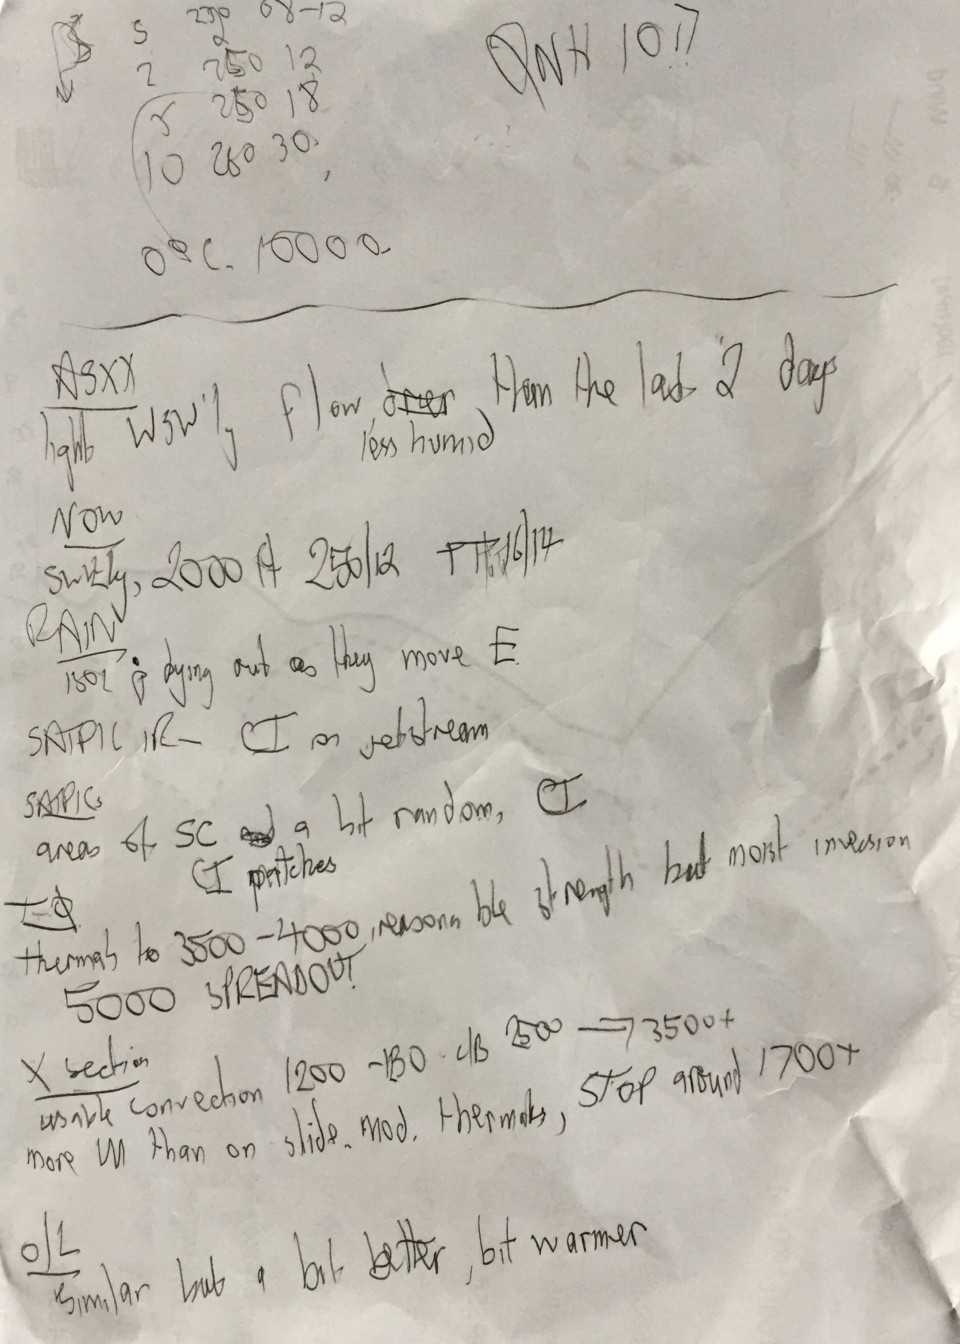 S 230 08-12
2 250 12
5 250 18
10 260 30
QNH 1017
0°C. 10000
ASXX
light WSW'ly flow, than the last 2 days
less humid
NOW
SW'ly, 2000 ft 250/12 16/14
RAIN
dying out as they move E
SATPIC IR- CI on jetstream
SATPIC
areas of SC a bit random, CI
CI patches
T-Φ
thermals to 3500-4000, reasonable strength but moist inversion
5000 SPREADOUT
X section
usable convection 1200 - C/B 2500 ⟹ 3500+
more than on slide. mod. thermals, STOP around 1700+
O/L
similar but a bit better, bit warmer